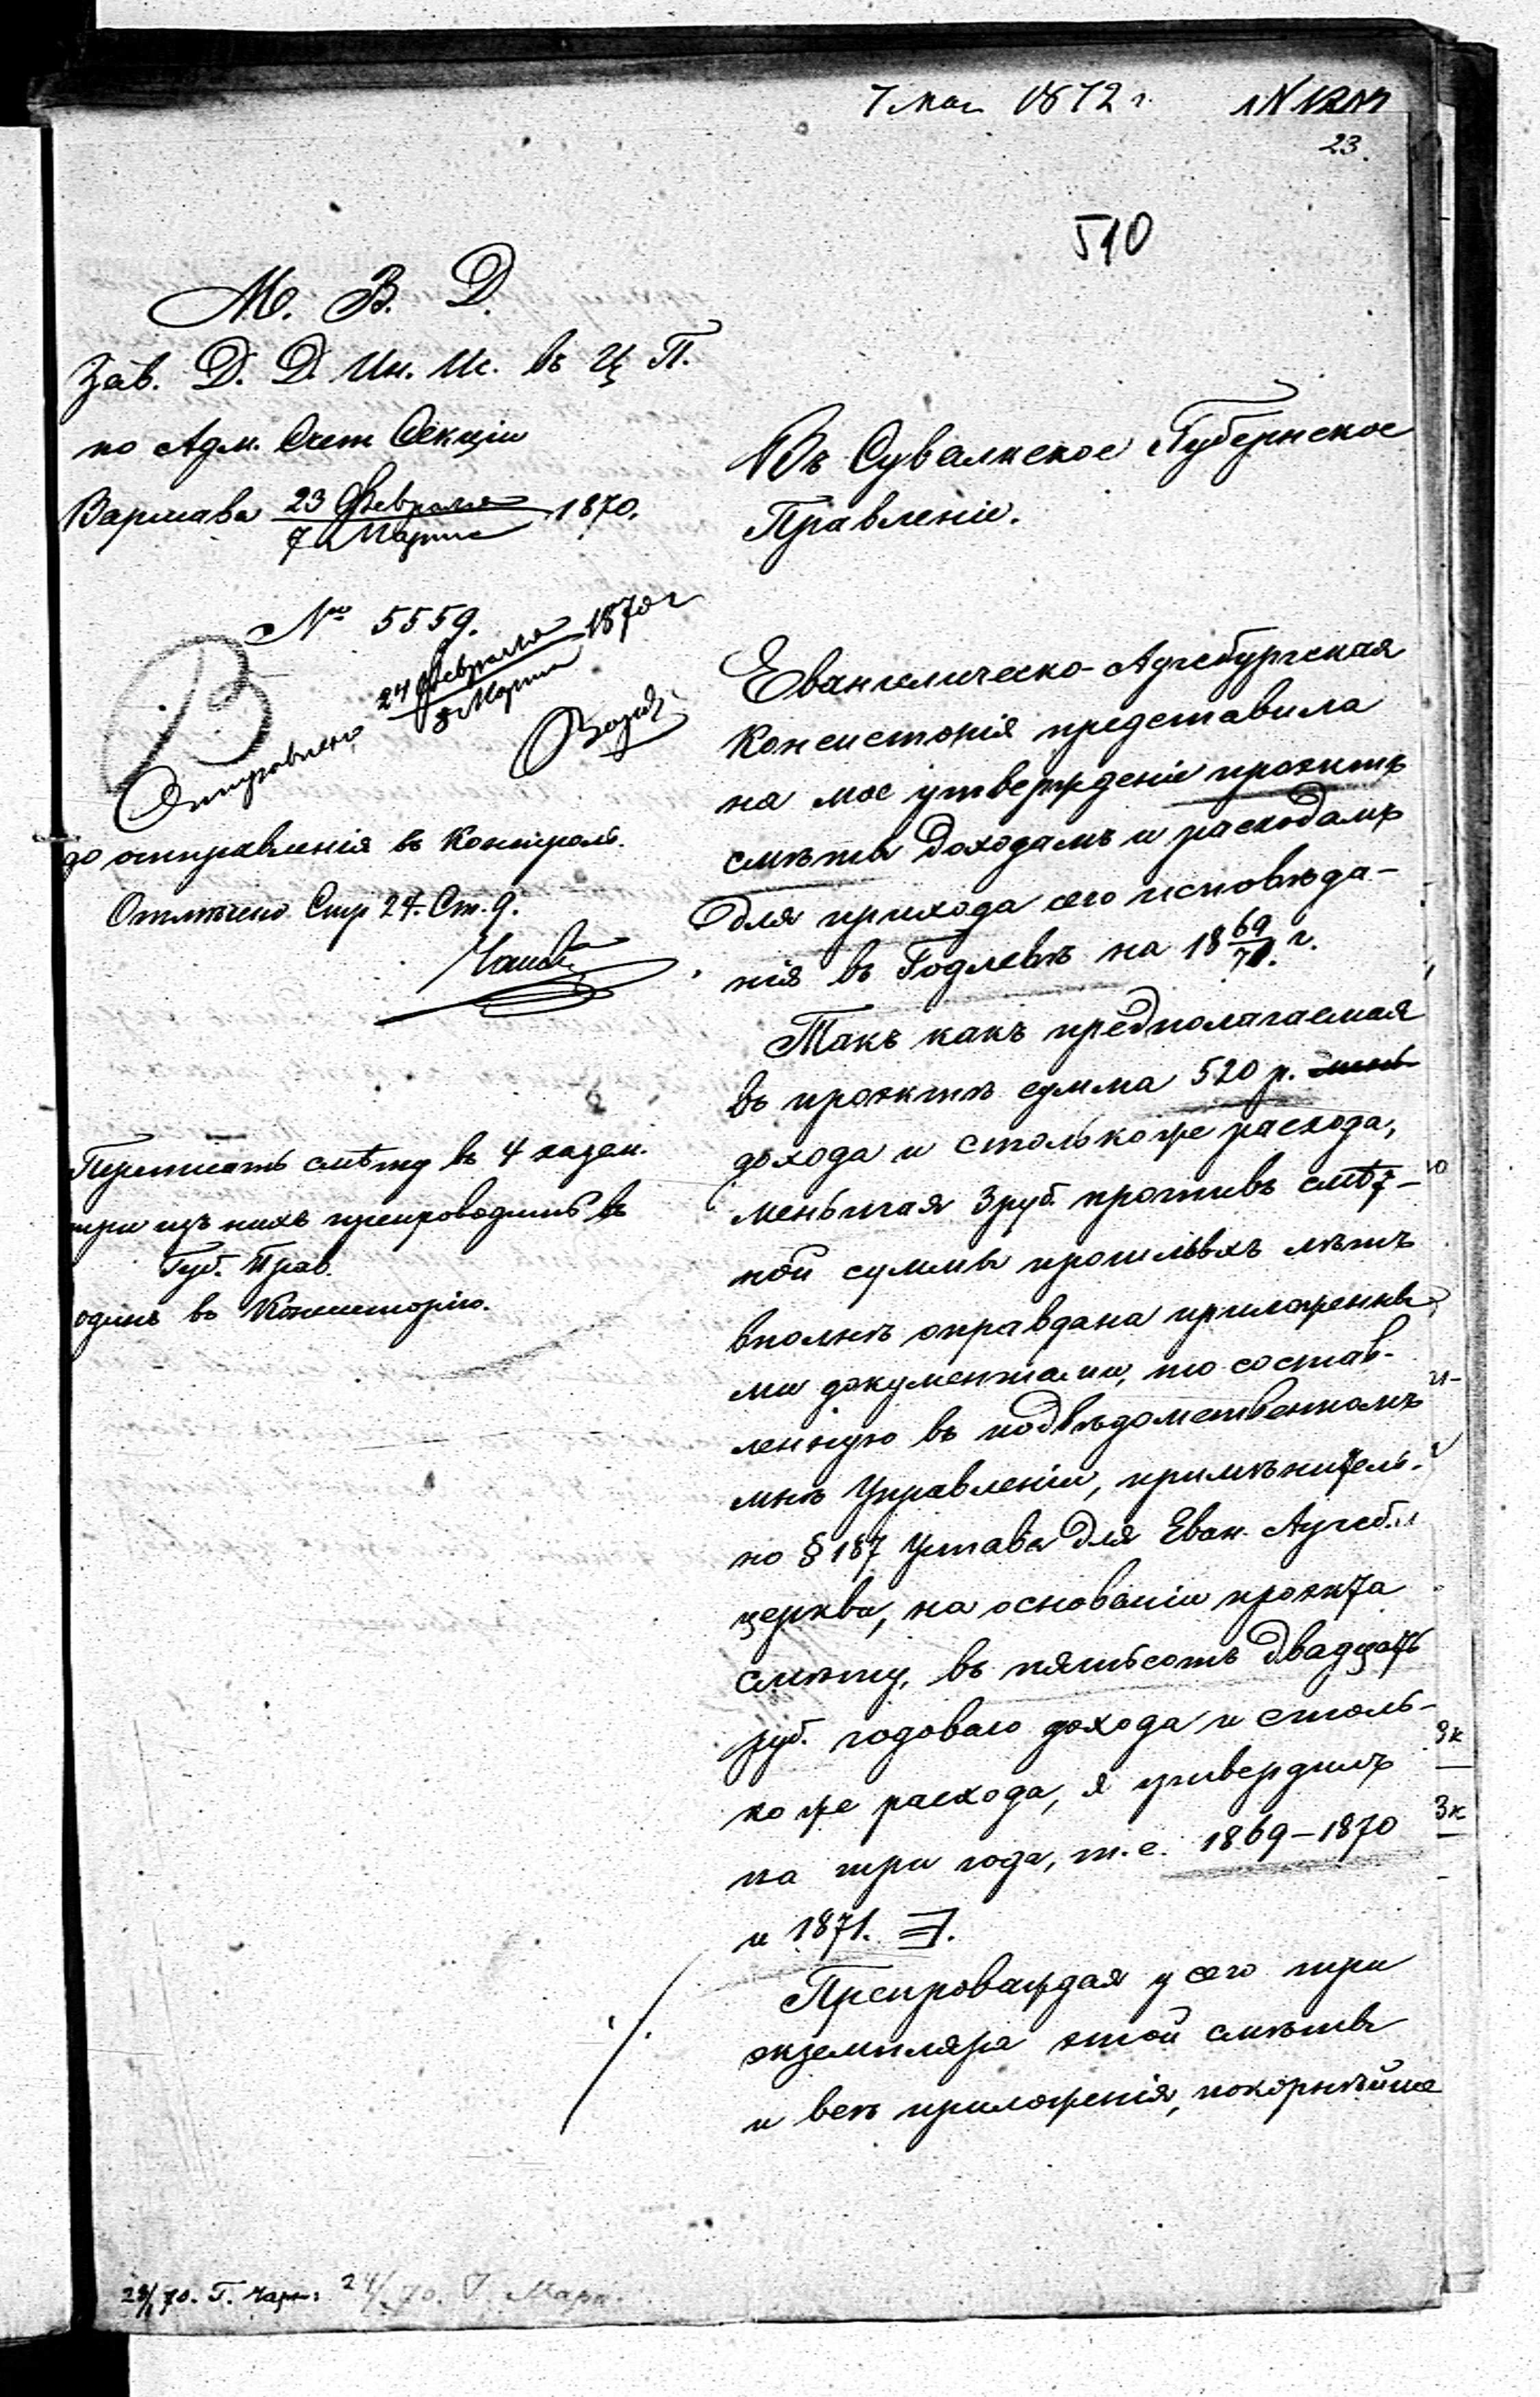 7 мая 1872 г.
23.
510
М. В. Д.
Зав. Д. Д. Ин. Ис. въ Ц П.
по Адм. Счет Секціи
Варшава 23 Февраля / 7 Марта 1870.
№ 5559.
В
Отправлено 24 Февраля / 8 Марта 1870 г
до отправленія въ Контроль.
Отмѣчено Стр 24. Ст. 9.
Переписать смѣту въ 4 экзем.
три изъ нихъ препроводить въ
Губ. Прав.
одинъ въ Консисторію.
Въ Сувалкское Губернское
Правленіе.
Евангелическо-Аугсбургская
Консисторія представила
на мое утвержденіе проэктъ
смѣты доходамъ и расходамъ
для прихода сего исповѣда-
нія въ Годлевѣ на 18 69/70 г.
Такъ какъ предполагаемая
въ проэктѣ сумма 520 р.
дохода и столькоже расхода,
меньшая 3 руб. противъ смѣт-
ной суммы прошлыхъ лѣтъ
вполнѣ оправдана приложенны
ми документами, то состав-
ленную въ подвѣдомственномъ
мнѣ Управленіи, примѣнитель-
но § 187 Устава для Еван. Аугсб.
церкви, на основаніи проэкта
смѣту, въ пятьсотъ двадцать
руб. годоваго дохода и столь-
ко же расхода, я утвердилъ
на три года, т.е. 1869-1870
и 1871.
Препровождая у сего три
экземпляра этой смѣты
и всѣ приложенія, покорнѣйше
3к
3к
24/70. Г. Марк.